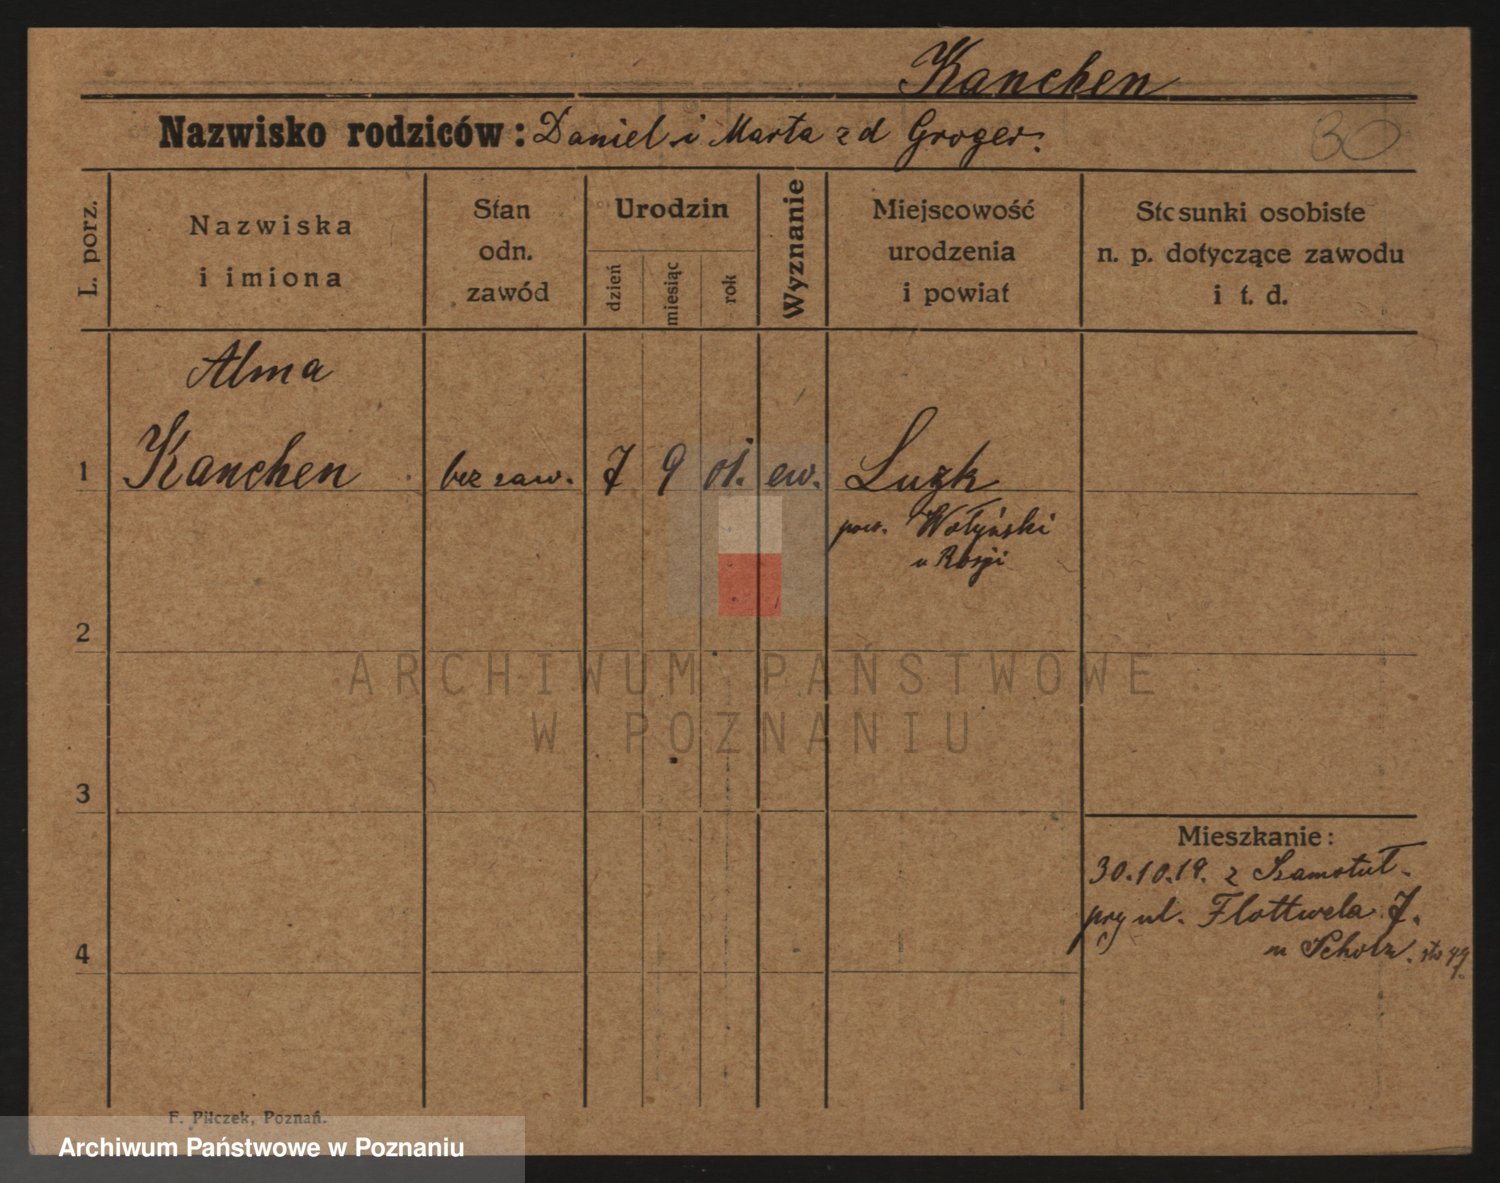 Kanchen
Nazwisko rodziców: Daniel i Marta zd Groger.
30
L. porz.
Nazwiska
i imiona
Stan
odn.
zawód
Urodzin
dzień
miesiąc
rok
Wyznanie
Miejscowość
urodzenia
i powiat
Stosunki osobiste
n. p. dotyczące zawodu
i t. d.
Alma
1 Kanchen bez zaw. 7 9 01. ew. Luzk
pow. Wołyński
w Rosji
2
ARCHIWUM PAŃSTWOWE
W POZNANIU
3
Mieszkanie:
30.10.19. z Szamotuł.
przy ul. Flottwela 7.
4
u Scholz.
F. Pilczek, Poznań.
Archiwum Państwowe w Poznaniu